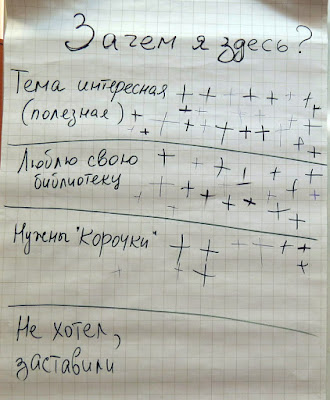 Зачем я здесь?
Тема интересная
(полезная)
Люблю свою
библиотеку
Нужны "Корочки"
Не хотел,
заставили